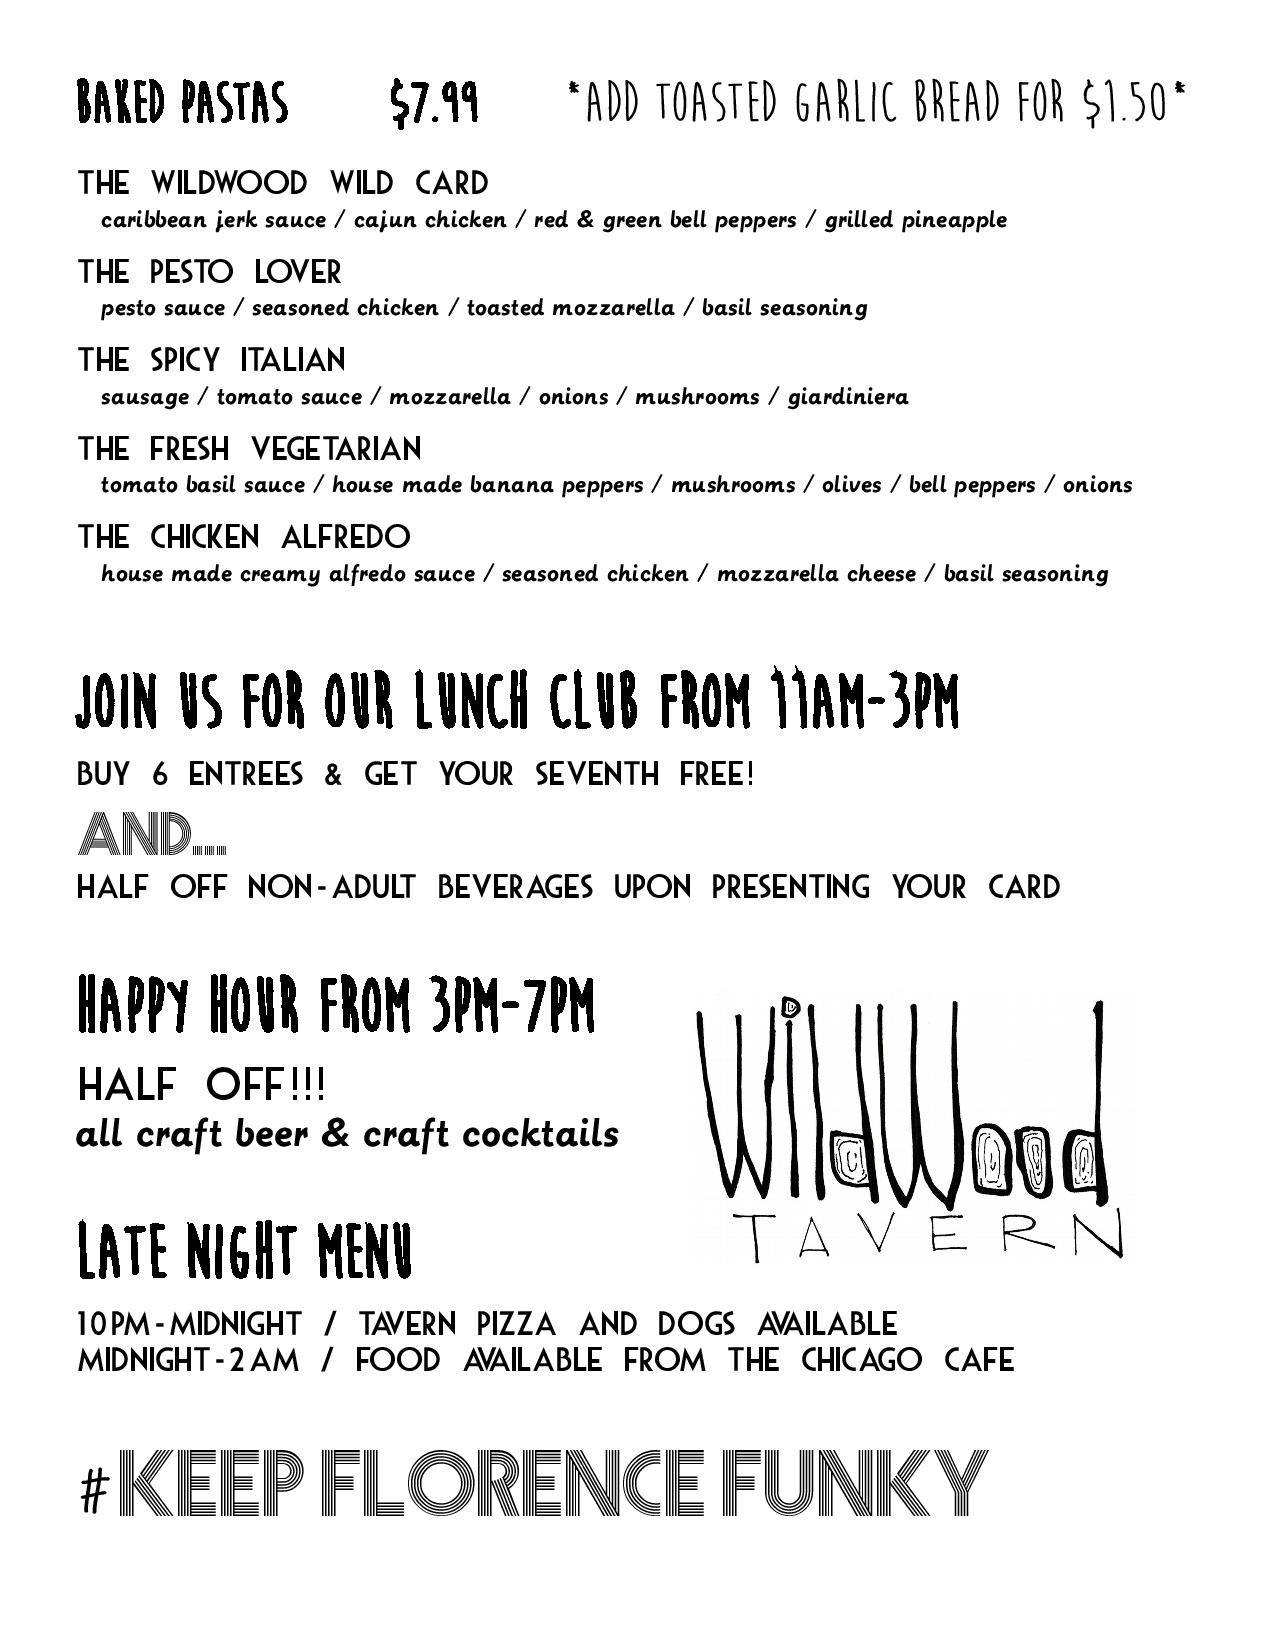 BAKED PASTAS $7.99 *ADD TOASTED GARLIC BREAD FOR $1.50*
THE WILDWOOD WILD CARD
caribbean jerk sauce / cajun chicken / red & green bell peppers / grilled pineapple
THE PESTO LOVER
pesto sauce / seasoned chicken / toasted mozzarella / basil seasoning
THE SPICY ITALIAN
sausage / tomato sauce / mozzarella / onions / mushrooms / giardiniera
THE FRESH VEGETARIAN
tomato basil sauce / house made banana peppers / mushrooms / olives / bell peppers / onions
THE CHICKEN ALFREDO
house made creamy alfredo sauce / seasoned chicken / mozzarella cheese / basil seasoning
JOIN US FOR OUR LUNCH CLUB FROM 11AM-3PM
BUY 6 ENTREES & GET YOUR SEVENTH FREE!
AND...
HALF OFF NON-ADULT BEVERAGES UPON PRESENTING YOUR CARD
HAPPY HOUR FROM 3PM-7PM
HALF OFF!!!
all craft beer & craft cocktails
WildWood
TAVERN
LATE NIGHT MENU
10PM-MIDNIGHT / TAVERN PIZZA AND DOGS AVAILABLE
MIDNIGHT-2AM / FOOD AVAILABLE FROM THE CHICAGO CAFE
#KEEP FLORENCE FUNKY